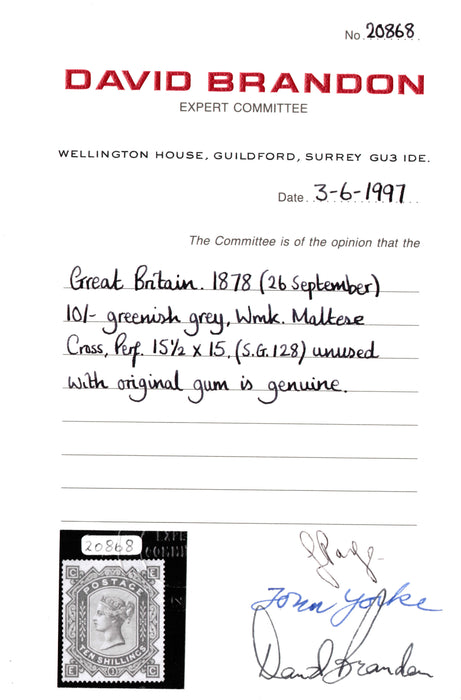 No. 20868
DAVID BRANDON
EXPERT COMMITTEE
WELLINGTON HOUSE, GUILDFORD, SURREY GU3 1DE.
Date. 3-6-1997
The Committee is of the opinion that the
Great Britain. 1878 (26 September)
10/- greenish grey, Wmk. Maltese
Cross, Perf. 15½ x 15, (S.G. 128) unused
with original gum is genuine.
20868
EXPE
COMMI
C E
POSTAGE
TEN SHILLINGS
E C
John Yorke
David Brandon